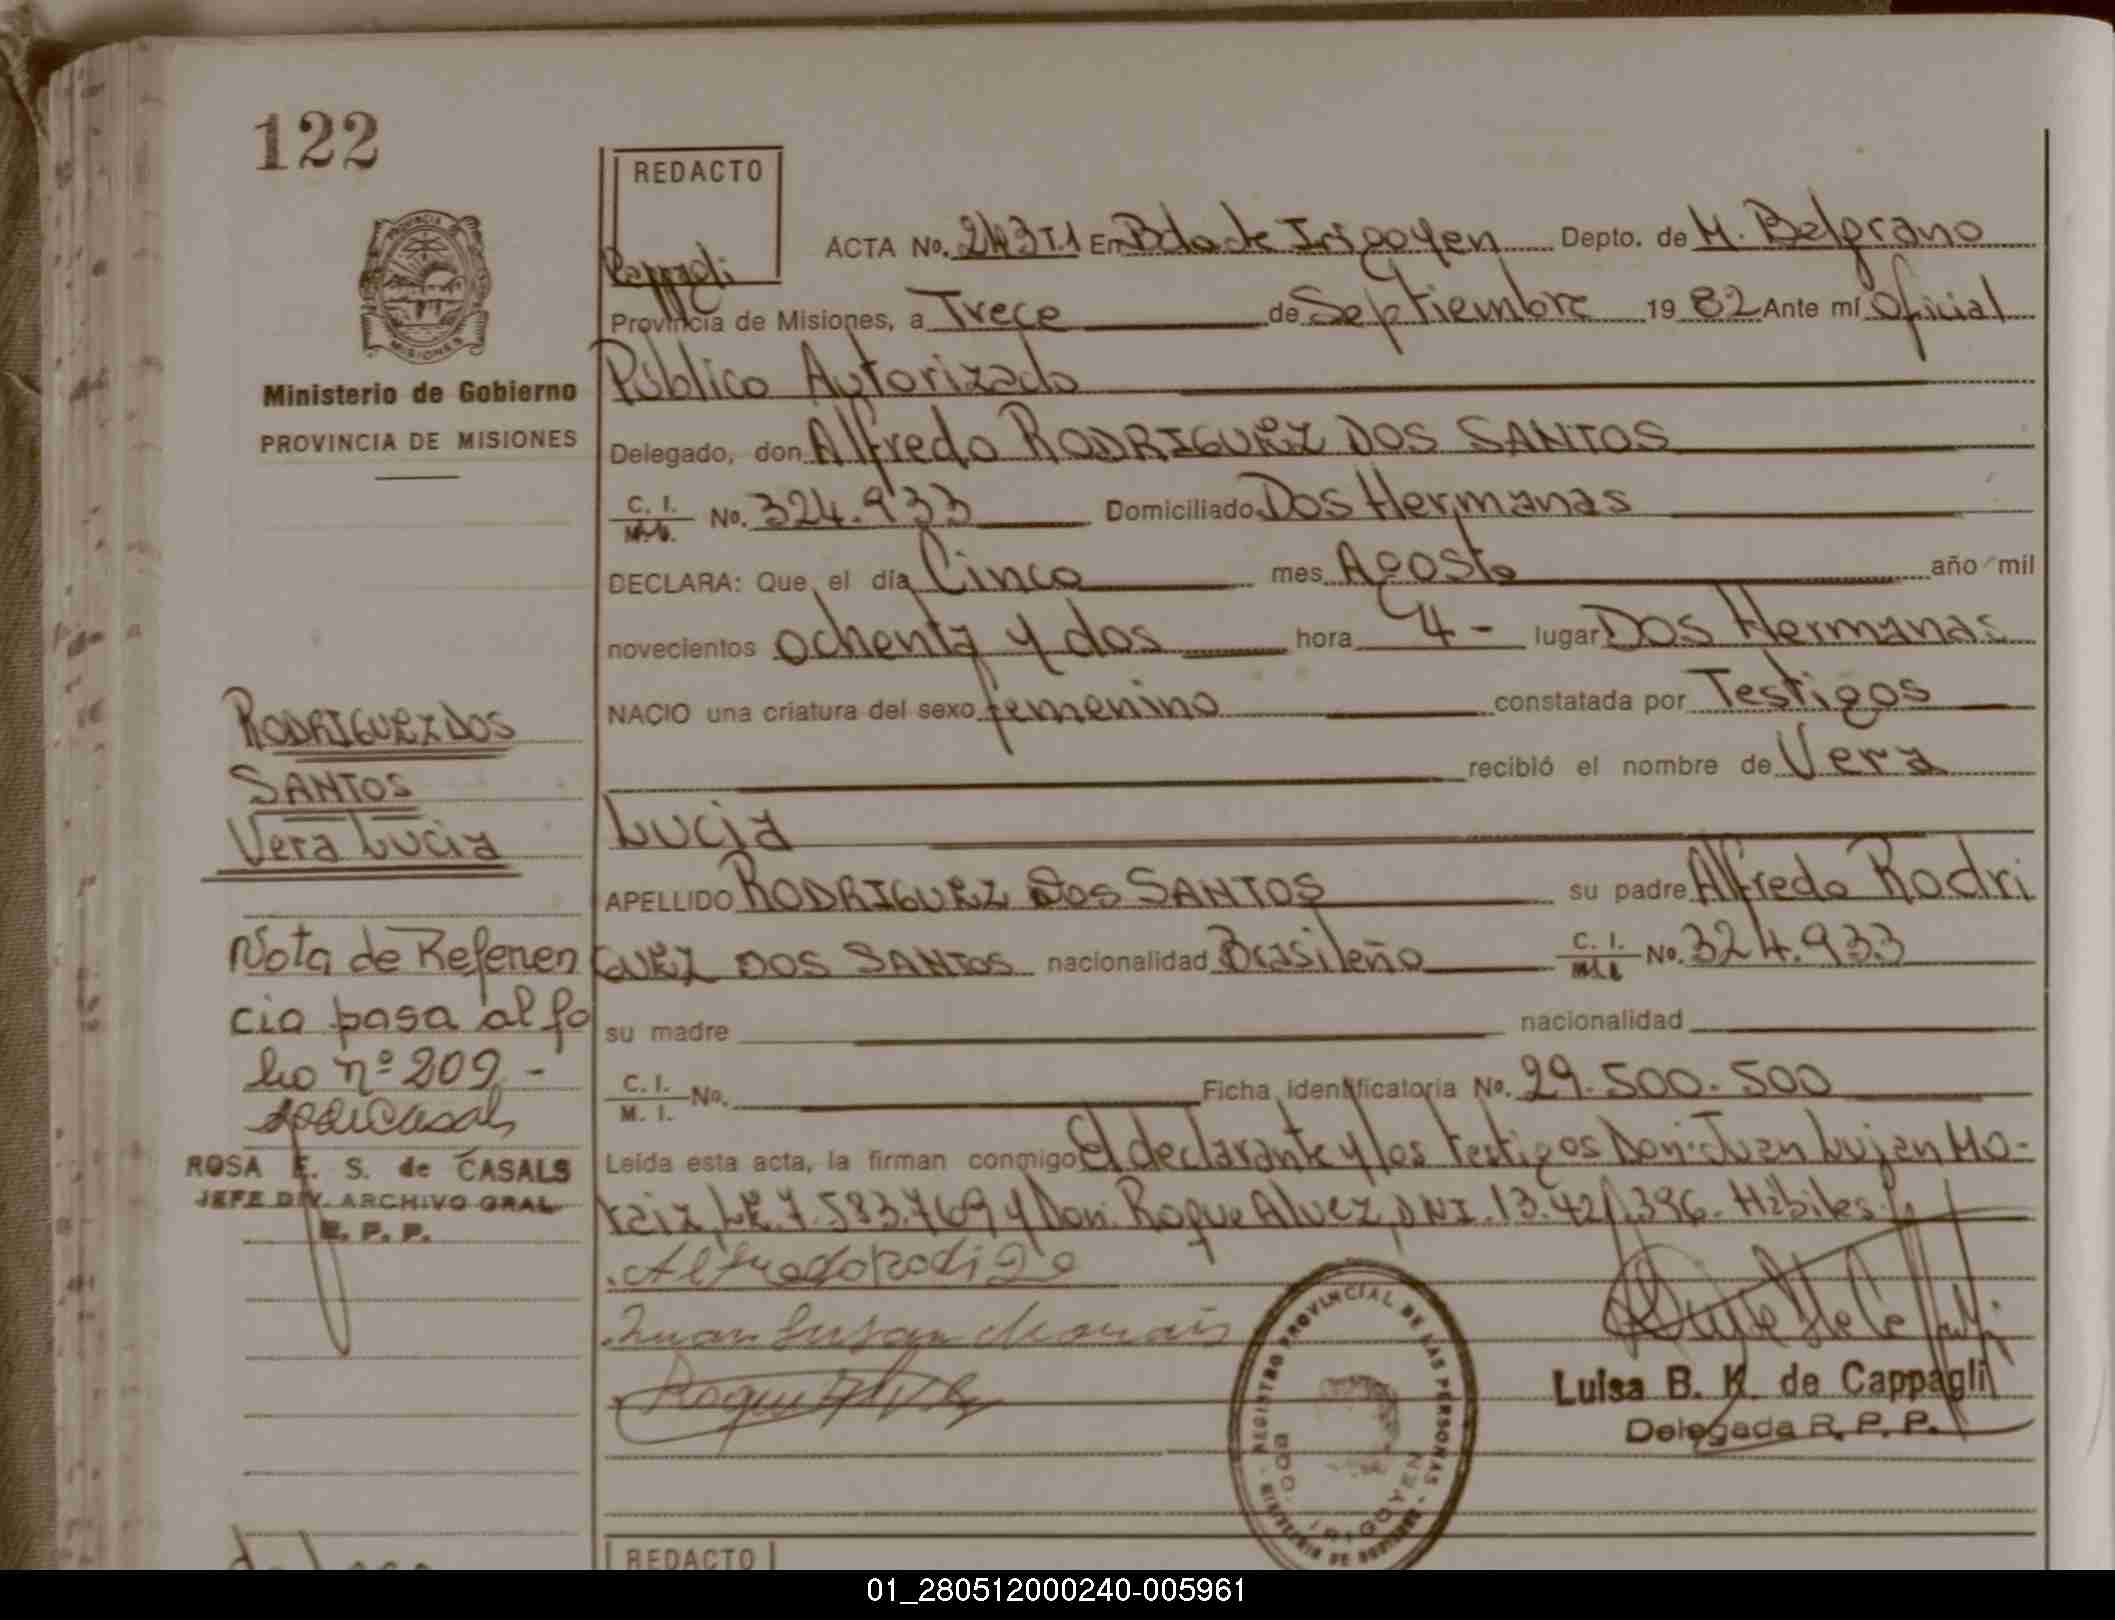 122
REDACTO
Cappagli
PROVINCIA DE
MISIONES
Ministerio de Gobierno
PROVINCIA DE MISIONES
ACTA No. 243 T.1 En Bdo de Irigoyen Depto. de M. Belgrano
Provincia de Misiones, a Trece de Septiembre 1982 Ante mí Oficial
Público Autorizado
Delegado, don Alfredo RODRIGUEZ DOS SANTOS
C. I. / M. I. No. 324.933 Domiciliado Dos Hermanas
DECLARA: Que el día Cinco mes Agosto año mil
novecientos ochenta y dos hora 4 - lugar Dos Hermanas
NACIO una criatura del sexo femenino constatada por Testigos
recibió el nombre de Vera
Lucia
APELLIDO RODRIGUEZ DOS SANTOS su padre Alfredo Rodri
GUEZ DOS SANTOS nacionalidad Brasileño C. I. / M. I. No. 324.933
su madre nacionalidad
C. I. / M. I. No. Ficha identificatoria No. 29.500.500
Leída esta acta, la firman conmigo El declarante y los testigos Don: Juan Lujan Mo-
raiz, LE. 7.583.769 y Don. Roque Alvez, DNI. 13.421.396. Hábiles.
Alfredo Rodi
Juan Lujan Morais
Roque Alvez
Luisa B. K. de Cappagli
Delegada R. P. P.
REGISTRO PROVINCIAL DE LAS PERSONAS - MINISTERIO DE GOBIERNO
IRIGOYEN
RODRIGUEZ DOS
SANTOS
Vera Lucia
Nota de Referen
cia pasa al fo
lio nº 209 -
ROSA E. S. de CASALS
JEFE DIV. ARCHIVO GRAL
R. P. P.
REDACTO
01_280512000240-005961